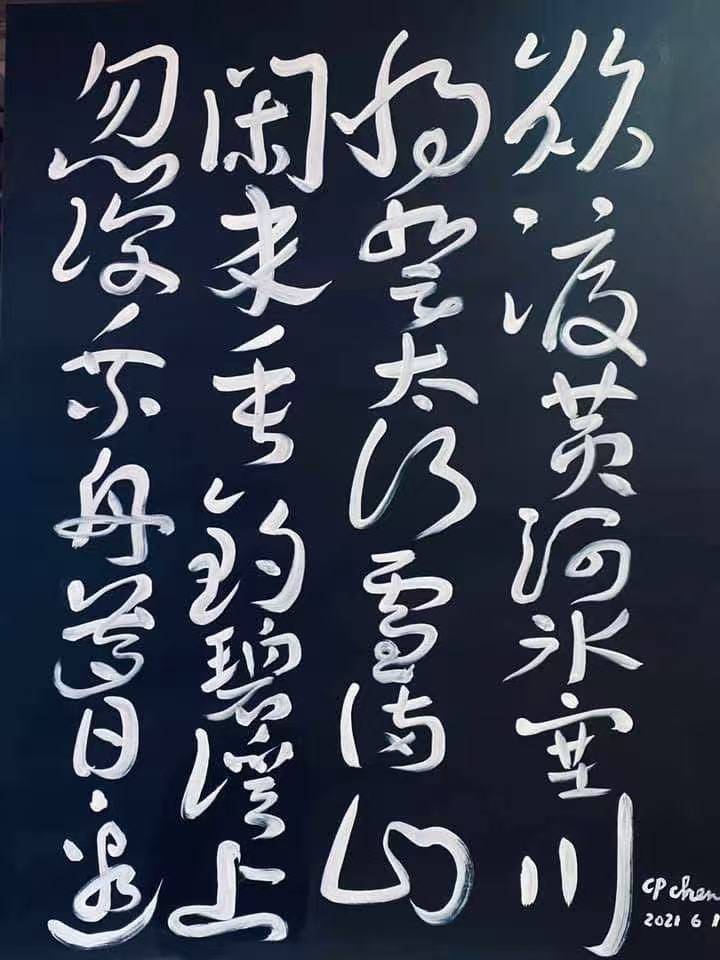 欲渡黄河冰塞川
将登太行雪满山
闲来垂钓碧溪上
忽復乘舟夢日邊
CP chen
2021 6 1